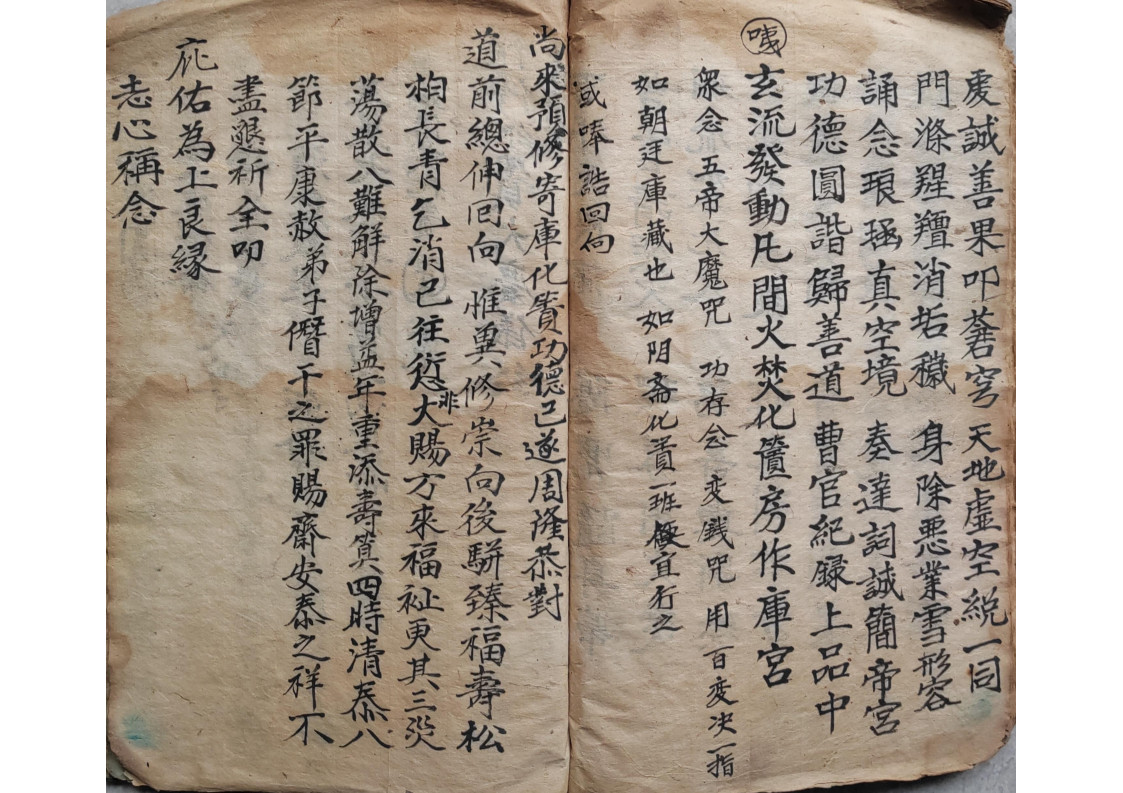 虔誠善果叩蒼穹 天地虛空総一同
門滌羶消垢穢 身除悪業雪形容
誦念琅𭺗真空境 奏達詞誠簡帝宮
功德圓諧歸善道 曹官紀録上品中
㖢玄流發動凡間火焚化籄房作庫宮
衆念 五帝大魔咒 功存念 变銭咒 用百变决一指
如朝廷庫藏也 如阴斋化簀一班極宜行之
或奉誥回向
尚來預修寄庫化簀功德已遂周隆恭對
道前總伸回向 惟兾修崇向後駢臻福壽松
柏長青乞消已往愆非大賜方來福祉更其三災
蕩散八難解除增益年重添壽筭四時清泰八
節平康赦弟子僭干之罪賜齋安泰之祥不
盡懇祈全叩
庇佑為上良緣
志心稱念